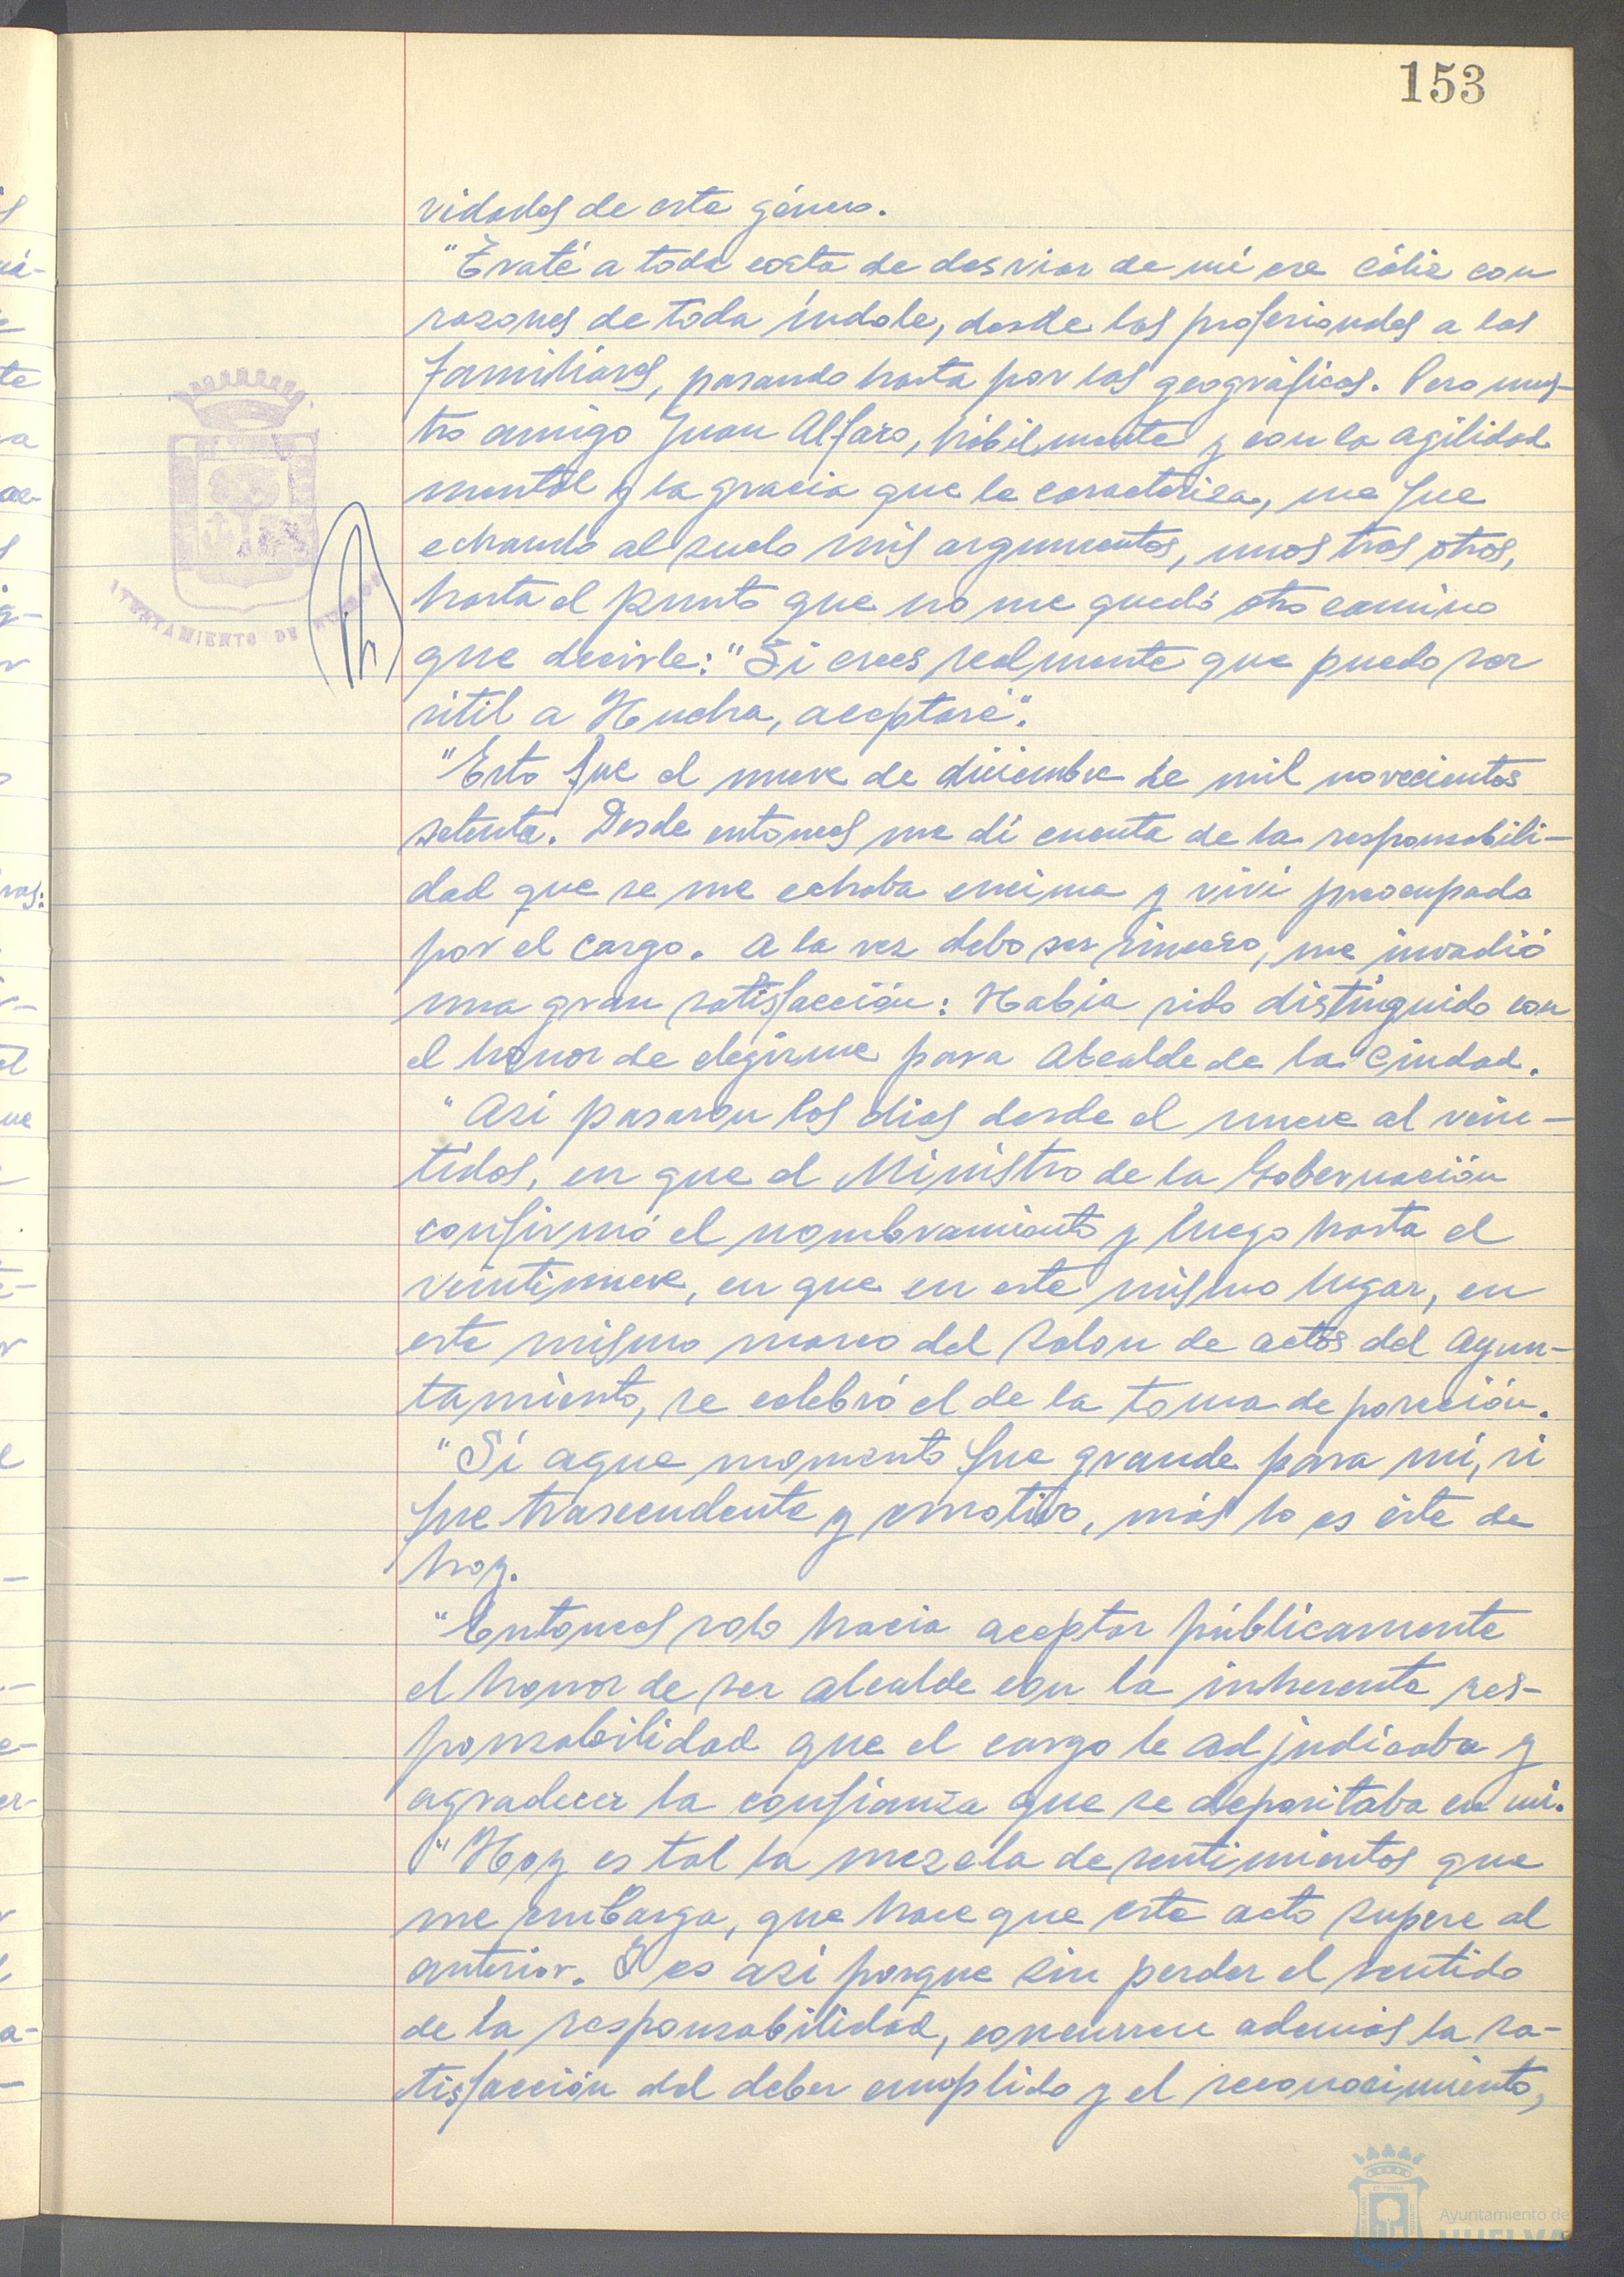 153
vidades de este género.
"Traté a toda costa de desviar de mí ese cáliz con
razones de toda índole, desde las profesionales a las
familiares, pasando hasta por las geográficas. Pero nues-
tro amigo Juan Alfaro, hábilmente y con la agilidad
mental y la gracia que le caracteriza, me fue
echando al suelo mis argumentos, unos tras otros,
hasta el punto que no me quedó otro camino
que decirle: "Si crees realmente que puedo ser
útil a Huelva, aceptaré".
"Esto fue el nueve de diciembre de mil novecientos
setenta. Desde entonces me dí cuenta de la responsabili-
dad que se me echaba encima y viví preocupado
por el cargo. A la vez debo ser sincero, me invadió
una gran satisfacción: Había sido distinguido con
el honor de elegirme para Alcalde de la Ciudad.
"Así pasaron los días desde el nueve al vein-
tidos, en que el Ministro de la Gobernación
confirmó el nombramiento y luego hasta el
veintinueve, en que en este mismo lugar, en
este mismo marco del Salon de actos del Ayun-
tamiento, se celebró el de la toma de posesión.
"Si aque momento fue grande para mí, si
fue trascendente y emotivo, más lo es éste de
hoy.
"Entonces solo hacía aceptar públicamente
el honor de ser alcalde con la inherente res-
ponsabilidad que el cargo le adjudicaba y
agradecer la confianza que se depositaba en mí.
"Hoy es tal la mezcla de sentimientos que
me embarga, que hace que este acto supere al
anterior. Y es así porque sin perder el sentido
de la responsabilidad, concurren además la sa-
tisfacción del deber cumplido y el reconocimiento,
AYUNTAMIENTO DE
Ayuntamiento de
HUELVA